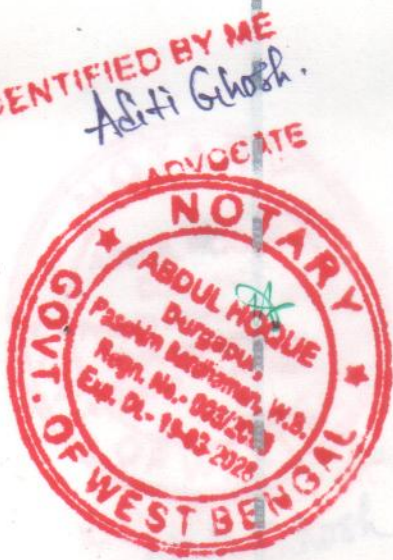 IDENTIFIED BY ME
Aditi Ghosh.
ADVOCATE
NOTARY
GOVT. OF WEST BENGAL
ABDUL HOQUE
Durgapur,
Paschim Bardhaman, W.B.
Regn. No.-
Exp. Dt.- 19-03-2028